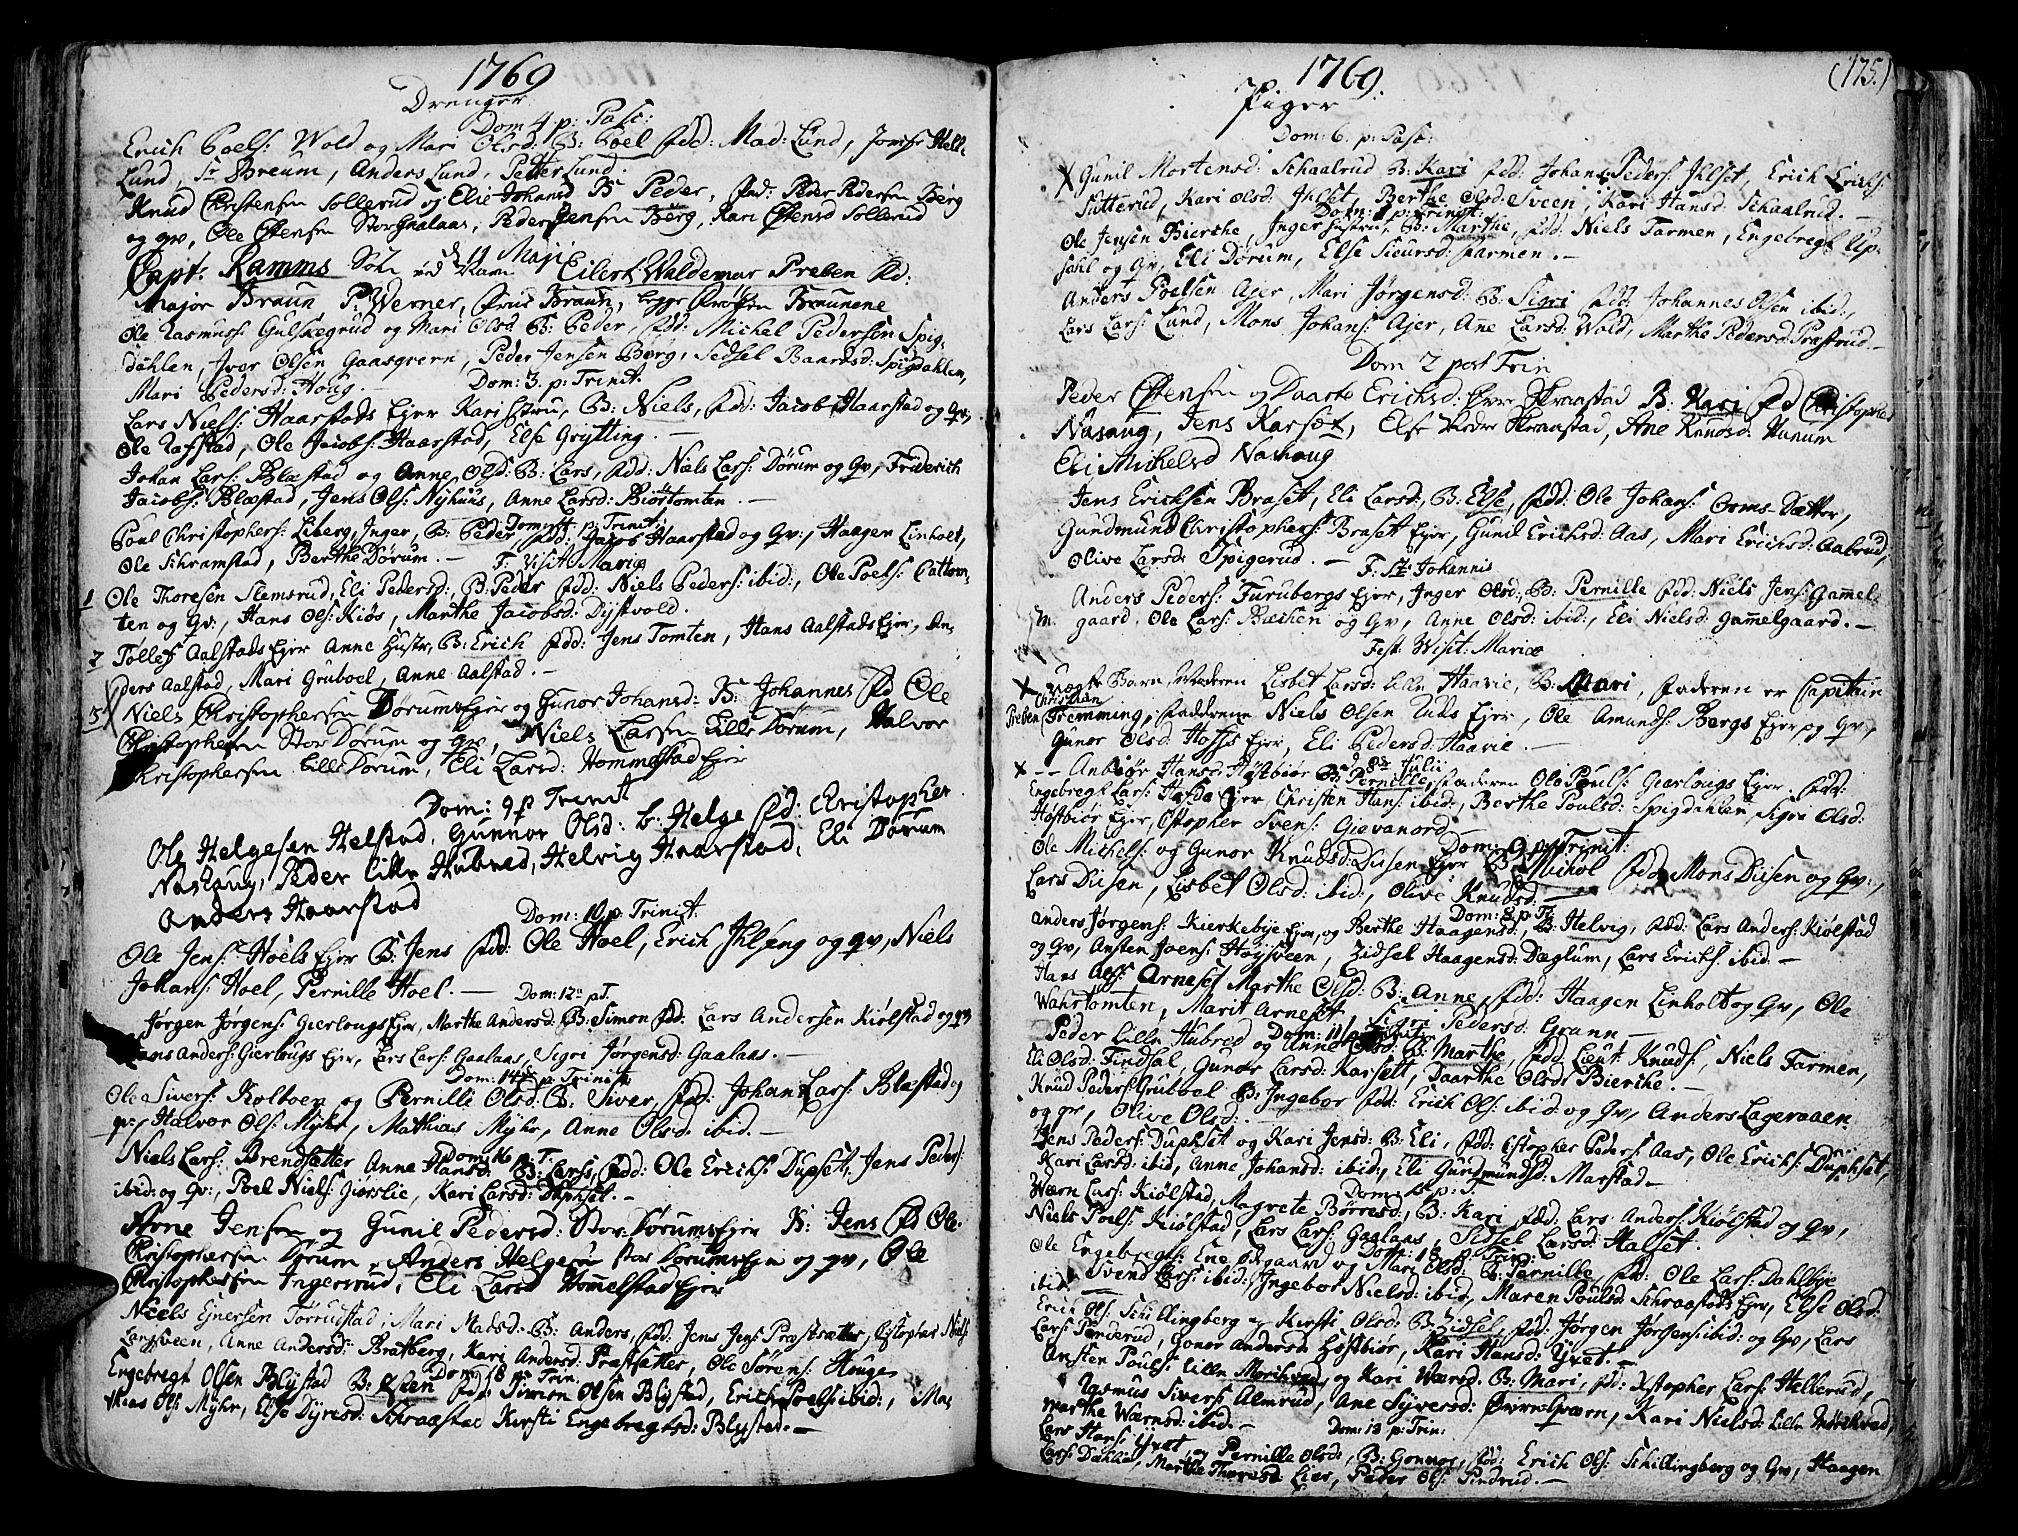 1769
Drenger
Dom 4 p: Pasc:
Erich Poels: Wold og Mari Olsd: B: Poel fdd: Mad: Lund, Jomfr Helle
Lund, Sr Breum, Anders Lund, Petter Lund.
Knud Christensen Sollerud og Elie Johansd B. Peder, fad: Peder Pedersen Berg
og qv, Ole Østensen Stor Gaalaas, Peder Jensen Berg, Kari Østensd Sollerud
d. 11 Maji
Capt: Ramms Søn ved Navn Eilert Waldemar Preben fd:
Major Braun P: Werner, Frue Braun, begge Frøken Braunene
Ole Rasmus: Gulskegrud og Mari Olsd. B: Peder, fdd: Michel Pedersen Spig-
dahlen, Iver Olsen Gaasqvern, Peder Jensen Berg, Sidsel Baardsd: Spigdahlen,
Mari Pedersd: Houg. —
Dom: 3. p: Trinit.
Lars Niels: Haarstads Ejer Kari Hstru, B: Niels, fdd: Jacob Haarstad og Qv,
Ole Rafstad, Ole Jacobs: Haarstad, Else Grytting. —
Johan Lars: Blæstad og Anne Olsd: B: Lars, fdd: Niels Lars: Dørum og Qv, Friderich
Jacobs: Blæstad, Jens Ols: Nyhuus, Anne Larsd: Biørtomten. —
Dom: p: Trinit:
Poul Christophers: Liberg, Inger, B: Peder fdd: Jacob Haarstad og Qv:, Haagen Linholt,
Ole Schramstad, Berthe Dørum. —
F: Visit Mariæ
1 Ole Thoresen Slemsrud, Eli Pedersd:, B: Peder fdd: Niels Peders: ibid:, Ole Poels: Cattom-
ten og Qv:, Hans Ols: Kiøs, Marthe Jacobsd: Dystvold.
2 Tollefs Aalstads Ejer Anne Hustr, B: Erich fdd: Jens Tomten, Hans Aalstads Ejer, An-
ders Aalstad, Mari Gruboel, Anne Aalstad. —
5 Niels Christophersen Dørums Ejer og Gunor Johansd: B: Johannes fd Ole
Christophersen Stor Dørum og qv, Niels Larsen Lille Dørum, Halvor
Christophersen Lille Dørum, Eli Larsd: Hommelstad Ejer
Dom: 9 p Trinit
Ole Helgesen Helstad, Gunnor Olsd: b: Helge fd: Christopher
Nashaug, Peder Lille Hubred, Helvig Haarstad, Eli Dørum
Anders Haarstad
Dom: 10 p: Trinit:
Ole Jens: Hoels Ejer B: Jens fdd: Ole Hoel, Erich Ihlseng og qv, Niels
Johans: Hoel, Pernille Hoel. —
Dom: 12 p T.
Jørgen Jørgens: Gierlougs Ejer, Marthe Andersd: B: Simon fdd: Lars Andersen Kiølstad og qv,
Hans Anders: Gierlougs Ejer, Lars Lars: Gaalaas, Sigri Jørgensd: Gaalaas. —
Dom: 14 p. Trinit:
Ole Sivers: Koltoen og Pernille Olsd: B: Siver, fdd: Johan Lars: Blæstad og
qv:, Halvor Ols: Myhr, Mathias Myhr, Anne Olsd: ibid. —
Dom: 16 p T.
Niels Lars: Brendsætter Anne Hansd: B: Lars, fdd: Ole Erichs: Dupset, Jens Peders:
ibid: og Qv:, Poel Niels: Giørslie, Kari Larsd: Duphset. —
Arne Jensen og Gunil Pedersd: Stor-Dørums Ejer B: Jens fd Ole
Christophersen Dørum, Anders Helgesen stor Dørums Ejer og qv, Ole
Christophersen Ingersrud, Eli Larsd Hommelstad Ejer
Niels Ejnersen Torrustad, Mari Matsd: B: Anders, fdd: Jens Jens: Præstsætter, Østopher Niels:
Langsveen, Anne Andersd: Bratberg, Kari Andersd: Præstsætter, Ole Sørens: Houge.
Dom: 18 p Trin.
Engebregt Olsen Blystad B: Østen fdd: Simon Olsen Blystad, Erich Poels: ibid:, Ma-
thias Ols: Myhr, Else Dyresd: Schraastad Kirsti Engebregtsd: Blystad. —
1769.
(175.)
Piger
Dom: 6. p: Pasc:
Gunil Mortensd: Schaalrud B: Kari fdd: Johan Peders: Ihlset, Erich Erichs:
Sutterud, Kari Olsd: Ihlset, Berthe Olsd: Sveen, Kari Hansd: Schaalrud. —
Dom: 1 p: Trinit:
Ole Jensen Bierche, Inger Hustru, B: Marthe, fdd: Niels Farmen, Engebregt Up-
sahl og Qv, Eli Dørum, Else Siversd: Farmen. —
Anders Poelsen Ajer, Mari Jørgensd: B: Sigri fdd: Johannes Olsen ibid:,
Lars Lars: Lund, Mons Johans: Ajer, Anne Larsd: Wold, Marthe Pedersd: Præstrud. —
Dom 2 post Trin
Peder Østensen og Daarte Erichsd: Øvre Skraastad B: Kari fd Christopher
Nashaug, Jens Karset, Else Nedre Skraastad, Ane Knudsd: Hunum
Eli Mikelsd Nashaug
Jens Erichsen Braset, Eli Larsd:, B: Else, fdd: Ole Johans: Ormsætter,
Gundmund Christophers: Braset Ejer, Gunil Erichsd: Aas, Mari Erichsd: Aabrud,
Olive Larsd: Spigerud. —
F: St: Johannis
Anders Peders: Furubergs Ejer, Inger Olsd:, B: Pernille fdd: Niels Jens: Gammel-
gaard, Ole Lars: Bechen og Qv, Anne Olsd: ibid:, Eli Nielsd: Gammelgaard. —
Fest: Visit: Mariæ
uægte Barn, Moderen Lisbet Larsd: Lille Haavie, B: Mari, Faderen er Capitain
Christian
Preben Fremming, Fadderene Niels Olsen Ruds Ejer, Ole Amunds: Bergs Ejer og Qv,
Gunor Olsd: Hoffs Ejer, Eli Pedersd: Haavie. —
d. 8de Julii
– – Anbiør Hansd: Høstbiør B: Pernille, Faderen Ole Pouls: Gierlougs Ejer. fdd:
Engebregt Lars: Ejer Christen Hans: ibid:, Berthe Poulsd: Spigdahlen, Sigri Olsd:
Høstbiør Ejer, Østopher Svens: Gievanord.
Dom: 9 p: Trinit:
Ole Michels: og Gunor Knudsd: Diesen Ejer B: Michol fdd Mons Diesen og Qv:,
Lars Diesen, Lisbet Olsd: ibid:, Olive Knudsd: —
Dom: 8 p: T.
Anders Jørgens: Kierkebye Ejer, og Berthe Haagensd:, B: Helvig, fdd: Lars Anders: Kiølstad
og Qv, Ansten Joens: Høysveen, Zidsel Haagensd: Dæglum, Lars Erichs: ibid. —
Hans Arneset Marthe Olsd: B: Anne fdd: Haagen Linholt og Qv, Ole
Wahrtomten, Marit Arneset, Sigri Pedersd: Grann —
Dom: 11 p Trinit:
Peder Lille Hubred og Anne Olsd: B: Marthe, fdd: Lieut: Knuds:, Niels Farmen,
Eli Olsd: Findsal, Gunor Larsd: Karsett, Daarthe Olsd: Bierche. —
Knud Peders: Gruboel B: Ingebor fdd: Erich Ols: ibid: og Qv, Anders Lageraaen
og qv, Olive Olsd: —
Jens Peders: Duphset og Kari Jensd: B: Eli, fdd: Østopher Peders: Aas, Ole Erichs: Duphset,
Kari Larsd: ibid, Anne Johansd: ibid:, Eli Gundmundsd: Marstad. —
Dom: p: T.
Wærn Lars: Kiølstad, Magrete Børresd:, B: Kari fdd, Lars Anders: Kiølstad og Qv,
Niels Poels: Kiølstad, Lars Lars: Gaalaas, Sidsel Larsd: Halset.
Dom: 18 p: Trin:
Ole Engebregts: Enebrgaard og Mari Olsd: B: Pernille, fdd: Ole Lars: Dahlbye
ibid: Svend Lars: ibid:, Ingebor Nielsd: ibid, Maren Poulsd: Schraastads Ejer, Else Olsd:
Erich Ols: Schillingberg og Kirsti Olsd: B: Zidsel, fdd: Jørgen Jørgens: ibid: og Qv, Lars
Lars: Pinderud, Gonor Andersd Høstbiør, Kari Hansd: Yvet. —
Ansten Pouls: Lille Mørchved og Kari Wærsd: B: Mari, fd: Xstopher Lars: Hellerud,
Rasmus Sivers: Almrud, Ane Syversd: Øvre Qværn, Kari Nielsd: Lille Mørchved,
Marthe Wærnsd: ibid. —
Dom: 19 p: Trin:
Lars Hans: Yvet og Pernille Olsd:, B: Gonnor, fdd: Erich Ols: Schillingberg og Qv, Haagen
Lars: Dæhlie, Marthe Thoresd: Lier, Peder Ols: Pindrud. —